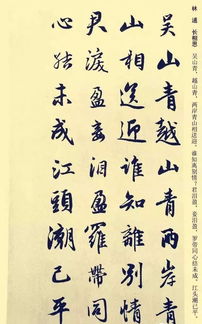 林逋 长相思 吴山青，越山青，两岸青山相送迎，谁知离别情？君泪盈，妾泪盈，罗带同心结未成，江头潮已平。
吴山青越山青兩岸青
山相送迎誰知離別情
君淚盈妾泪盈羅帶同
心結未成江頭潮已平